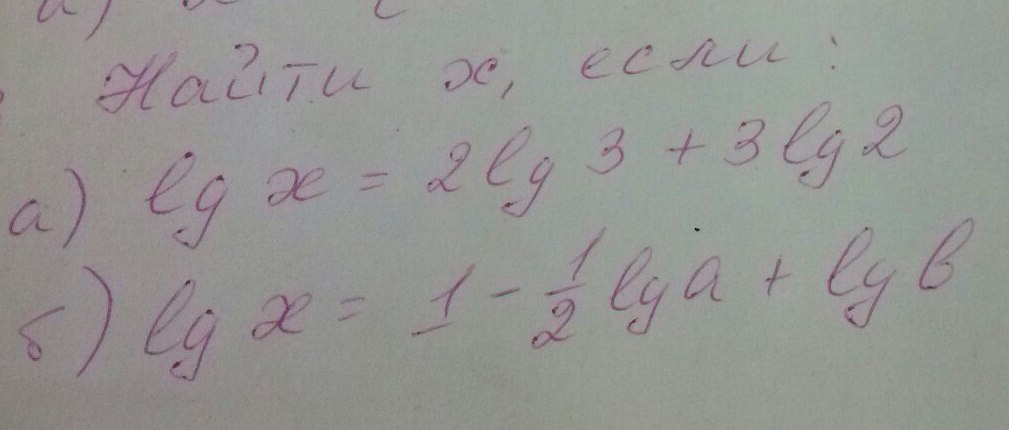 Найти x, если:
а) lg x = 2 lg 3 + 3 lg 2
б) lg x = 1 - 1/2 lg a + lg b